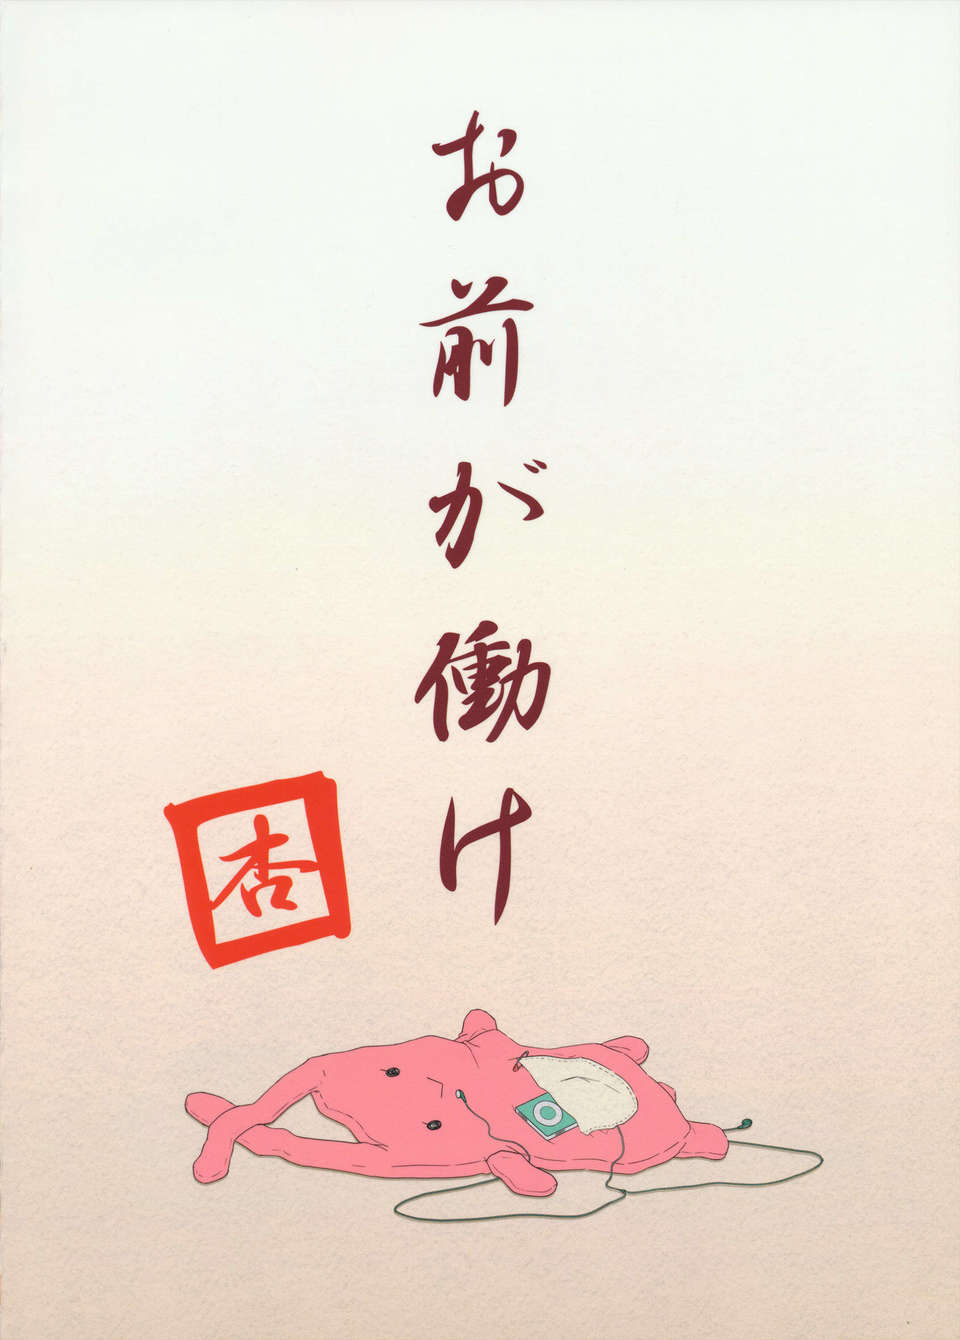 お前が働け
杏